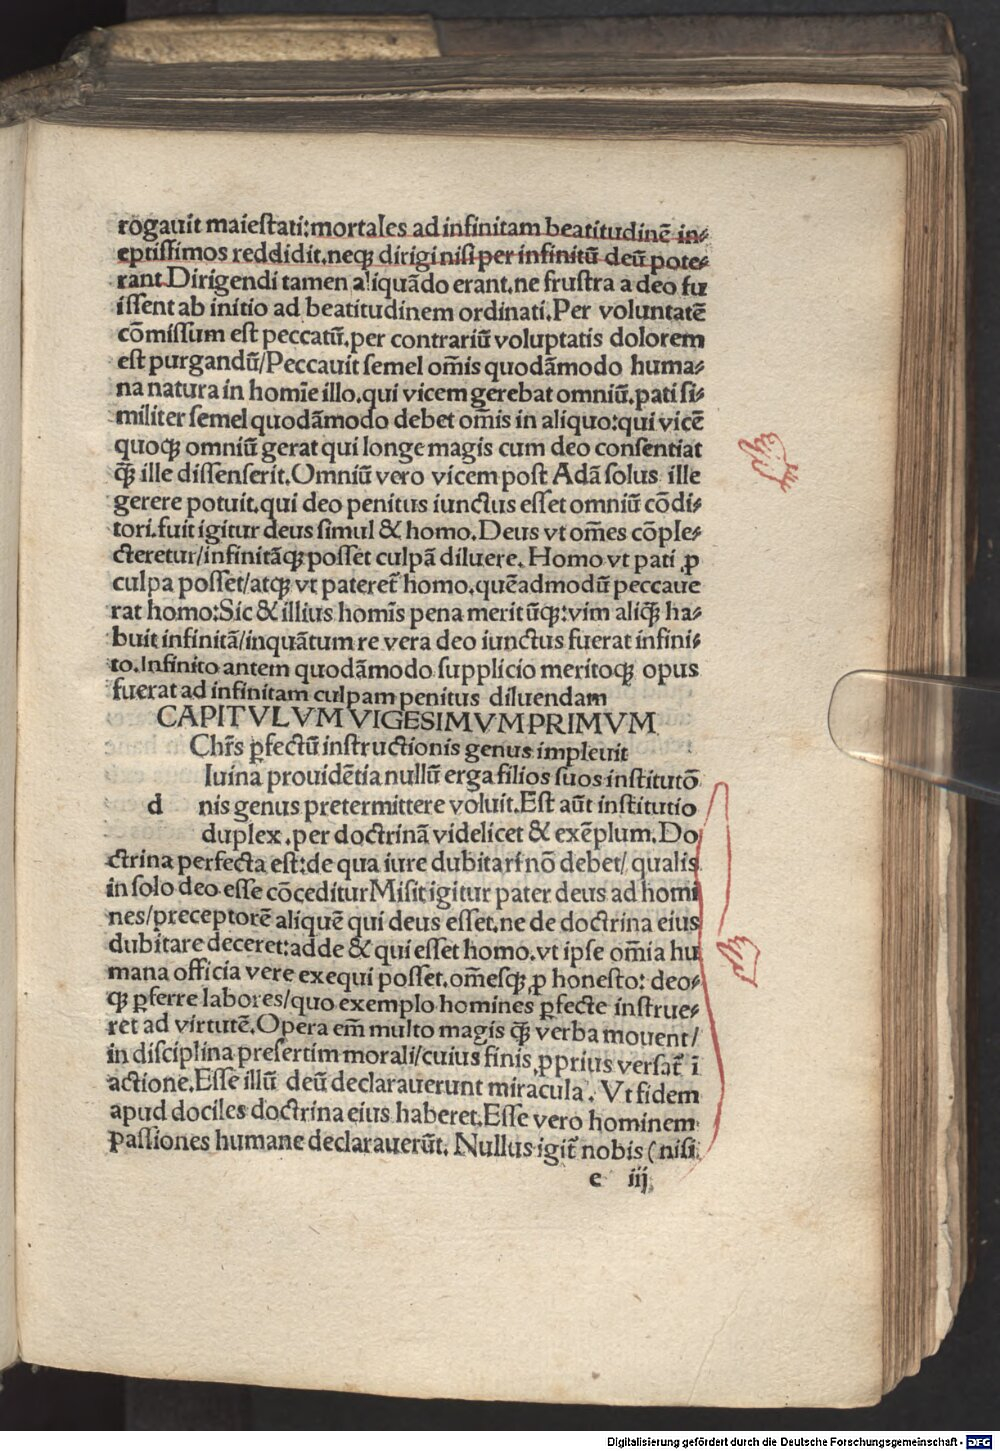 rogauit maiestati:mortales ad infinitam beatitudinē in⸗
eptissimos reddidit.neqꝫ dirigi nisi per infinitū deū pote⸗
rant.Dirigendi tamen aliquādo erant.ne frustra a deo fu
issent ab initio ad beatitudinem ordinati.Per voluntatē
cōmissum est peccatū.per contrariū voluptatis dolorem
est purgandū/Peccauit semel om̄is quodāmodo huma⸗
na natura in homīe illo.qui vicem gerebat omniū.pati si⸗
militer semel quodāmodo debet om̄is in aliquo:qui vicē
quoqꝫ omniū gerat qui longe magis cum deo consentiat
q̄ꝫ ille dissenserit.Omniū vero vicem post Adā solus ille
gerere potuit.qui deo penitus iunctus esset omniū cōdi⸗
tori.fuit igitur deus simul & homo.Deus vt om̄es cōple⸗
cteretur/infinitāqꝫ posset culpā diluere. Homo vt pati ꝓ
culpa posset/atqꝫ vt pateret̄ homo.quēadmodū peccaue
rat homo:Sic & illius homīs pena merit ūqꝫ:vim aliq̄ꝫ ha⸗
buit infinitā/inquātum re vera deo iunctus fuerat infini⸗
to.Infinito antem quodāmodo supplicio meritoqꝫ opus
fuerat ad infinitam culpam penitus diluendam
CAPITVLVM VIGESIMVM PRIMVM
Chr̄s ꝑfectū instructionis genus impleuit
Iuina prouidētia nullū erga filios suos institutō
d nis genus pretermittere voluit.Est aūt institutio
duplex.per doctrinā videlicet & exēplum.Do
ctrina perfecta est:de qua iure dubitari nō debet/ qualis
in solo deo esse cōceditur Misit igitur pater deus ad homi
nes/preceptorē aliquē qui deus esset.ne de doctrina eius
dubitare deceret:adde & qui esset homo.vt ipse om̄ia hu
mana officia vere exequi posset.om̄esqꝫ ꝓ honesto: deo⸗
qꝫ ꝑferre labores/quo exemplo homines ꝑfecte instrue⸗
ret ad virtutē.Opera em̄ multo magis q̄ꝫ verba mouent/
in disciplina presertim morali/cuius finis ꝓprius versat̄ ī
actione.Esse illū deū declarauerunt miracula. Vt fidem
apud dociles doctrina eius haberet.Esse vero hominem
passiones humane declarauerūt. Nullus igit̄ nobis (nisi
e iij
Digitalisierung gefördert durch die Deutsche Forschungsgemeinschaft - DFG